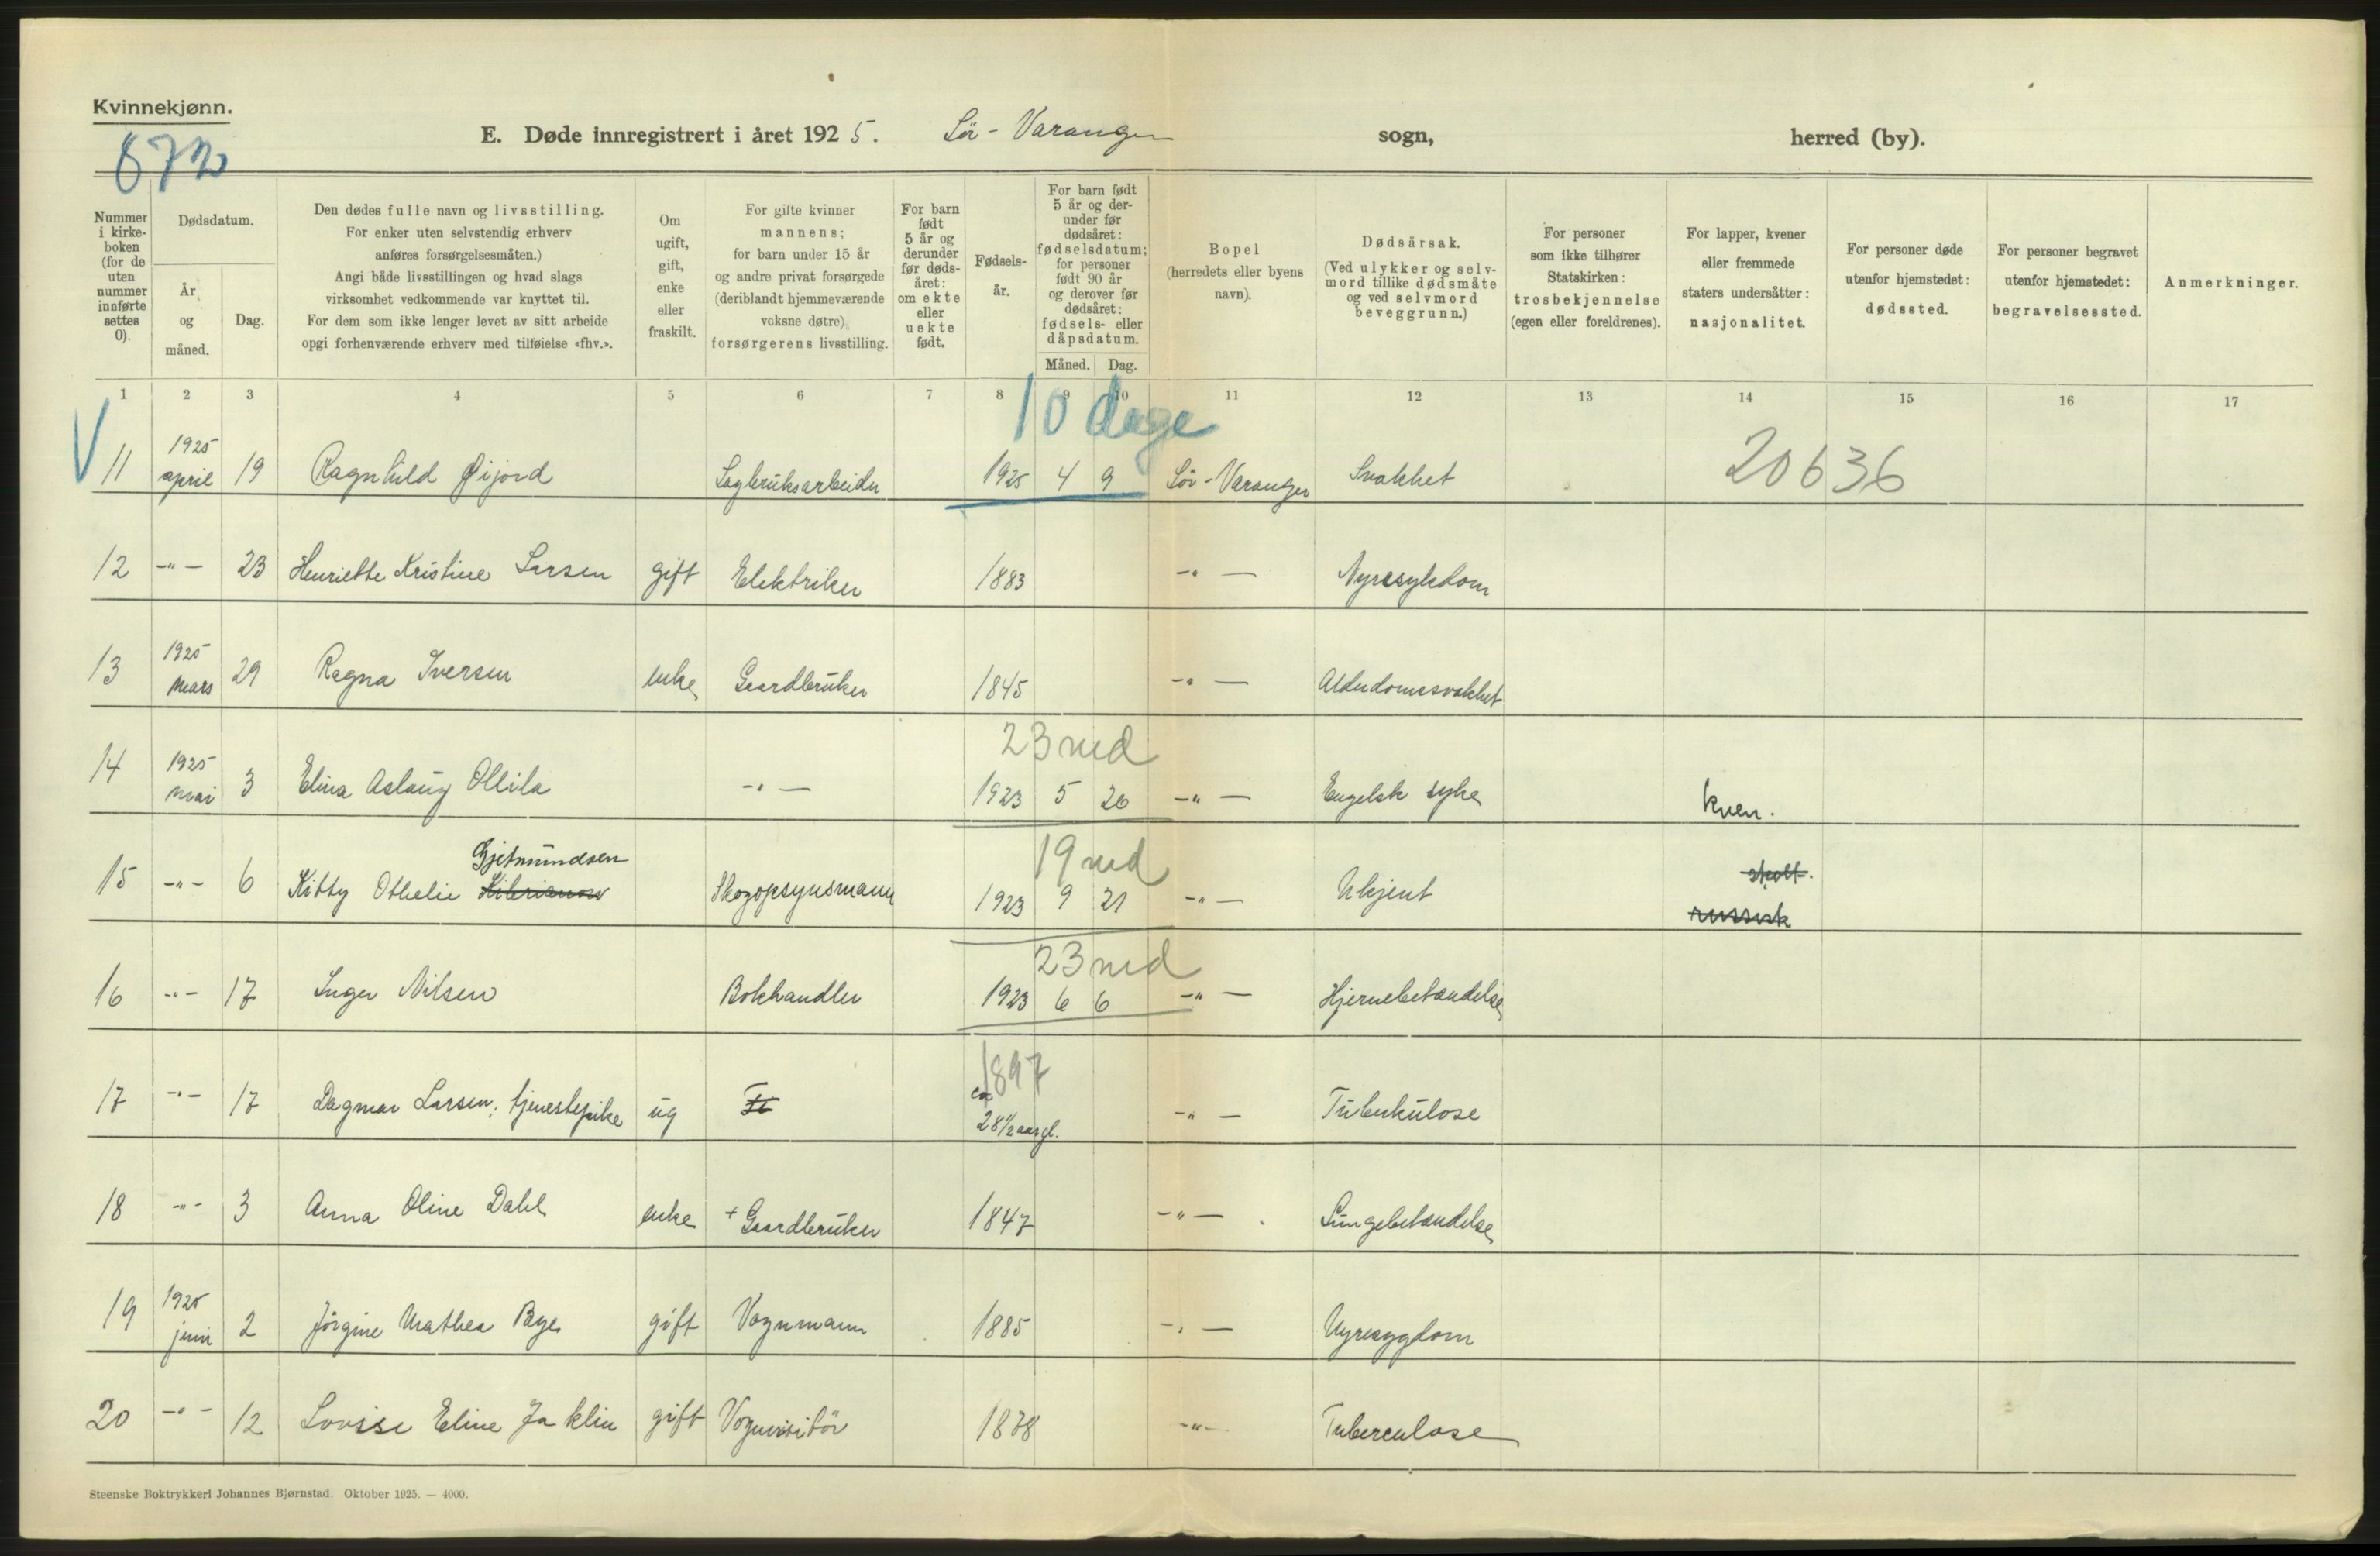 Kvinnekjønn.
872
E. Døde innregistrert i året 1925. Sör-Varanger sogn, herred (by).
Nummer i kirke-boken (for de uten nummer innførte settes 0).
Dødsdatum.
År og måned.
Dag.
Den dødes fulle navn og livsstilling.
For enker uten selvstendig erhverv
anføres forsørgelsesmåten.)
Angi både livsstillingen og hvad slags
virksomhet vedkommende var knyttet til.
For dem som ikke lenger levet av sitt arbeide
opgi forhenværende erhverv med tilføielse «fhv.».
Om ugift, gift, enke eller fraskilt.
For gifte kvinner
mannens;
for barn under 15 år
og andre privat forsørgede
(deriblandt hjemmeværende
voksne døtre)
forsørgerens livsstilling.
For barn født 5 år og derunder før døds-året: om ekte eller uekte født.
Fødsels-år.
For barn født 5 år og der-under før dødsåret: fødselsdatum; for personer født 90 år og derover før dødsåret: fødsels- eller dåpsdatum.
Måned. Dag.
Bopel
(herredets eller byens
navn).
Dødsårsak.
(Ved ulykker og selv-
mord tillike dødsmåte
og ved selvmord
beveggrunn.)
For personer
som ikke tilhører
Statskirken:
trosbekjennelse
(egen eller foreldrenes).
For lapper, kvener
eller fremmede
staters undersåtter:
nasjonalitet.
For personer døde
utenfor hjemstedet:
dødssted.
For personer begravet
utenfor hjemstedet:
begravelsessted.
Anmerkninger.
1 2 3 4 5 6 7 8 9 10 11 12 13 14 15 16 17
10 dage
V 11 1925 april 19 Ragnhild Øijord Sagbruksarbeider 1925 4 9 Sör-Varanger Svakhet 20636
12 -"- 23 Henriette Kristine Larsen gift Elektriker 1883 -"- Nyresykdom
13 1925 mars 29 Ragna Iversen enke Gaardbruker 1845 -"- Alderdomssvakhet
23 md
14 1925 mai 3 Elina Aslaug Ollila -"- 1923 5 26 -"- Engelsk syke kven.
19 md
Gjetmundsen
15 -"- 6 Kitty Othelie Skogopsynsmann 1923 9 21 -"- Ukjent skolt. russisk
23 md
16 -"- 17 Inger Nilsen Bokhandler 1923 6 6 -"- Hjernebetændelse
1897
17 -"- 17 Dagmar Larsen, tjenestepike ug ca 28 1/2 aar gl. -"- Tuberkulose
18 -"- 3 Anna Oline Dahl enke + Gaardbruker 1847 -"- Lungebetændelse
19 1925 juni 2 Jörgine Mathea Bye gift Vognmann 1885 -"- Nyresygdom
20 -"- 12 Lovise Eline Jaklin gift Vognvisitör 1878 -"- Tuberculose
Steenske Boktrykkeri Johannes Bjørnstad. Oktober 1925. — 4000.